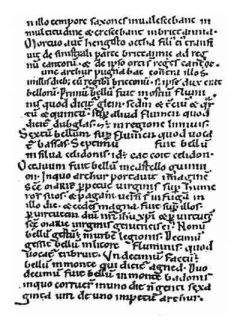 n illo tempore saxones inualescebant in
multitudine & crescebant in brittannia.
Mortuo aut̄ hengisto octha fili' ei' transi
uit de sinistrali parte brittannie ad reg
nū cantorū. & de ipso orti s̄ reges cantor̄.
unc arthur pugnabat contra illos.
in illis dieb; cū regib; brittonū. s; ipse dux erat
bellorū. Primū bellū fuit in ostiū flumi
nis quod dicit̄ glein. scd̄m & tciū & qr
tū & quintū. sup̄ aliud flumen quod
dicit̄ dubglas. & ē in regione linnuis.
Sextū bellum sup̄ flumen quod uoca
t̄ bassas. Septimū fuit bellū
in silua celidonis. id ē cat coit celidon.
Octauum fuit bellū in castello guinni
on. In quo arthur portauit imaginē
scē marie ppetue uirginis sup̄ hume
ros suos. & pagani uersi s̄ in fugā in
illo die. & cedes magna fuit sup̄ illos.
p uirtutem dn̄i nr̄i ihū xpī & p uirtutē
scē marie uirginis genitricis ei'. Nonū
bellū gestū ē in urbe legionis. Decimū
gessit bellū in litore fluminis. quod
uocat̄ tribruit. Undecimū factū ē
bellū in monte qui dicit̄ agned. Duo
decimū fuit bellū in monte badonis.
in quo corruer̄ in uno die nongenti sexa
ginta uiri de uno impetu arthur.